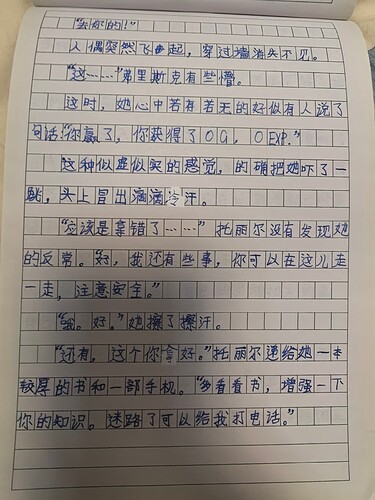 “去你的！”
人偶突然飞起，穿过墙消失不见。
“这……”弗里斯克有些懵。
这时，她心中若有若无的好似有人说了
句话：“你赢了，你获得了0G，0EXP.”
这种似虚似实的感觉，的确把她吓了一
跳，头上冒出滴滴冷汗。
“应该是拿错了……”托丽尔没有发现她
的反常。“好，我还有些事，你可以在这儿走
一走，注意安全。”
“好。”她擦了擦汗。
“还有，这个你拿好。”托丽尔递给她一本
较厚的书和一部手机。“多看看书，增强一下
你的知识。迷路了可以给我打电话。”